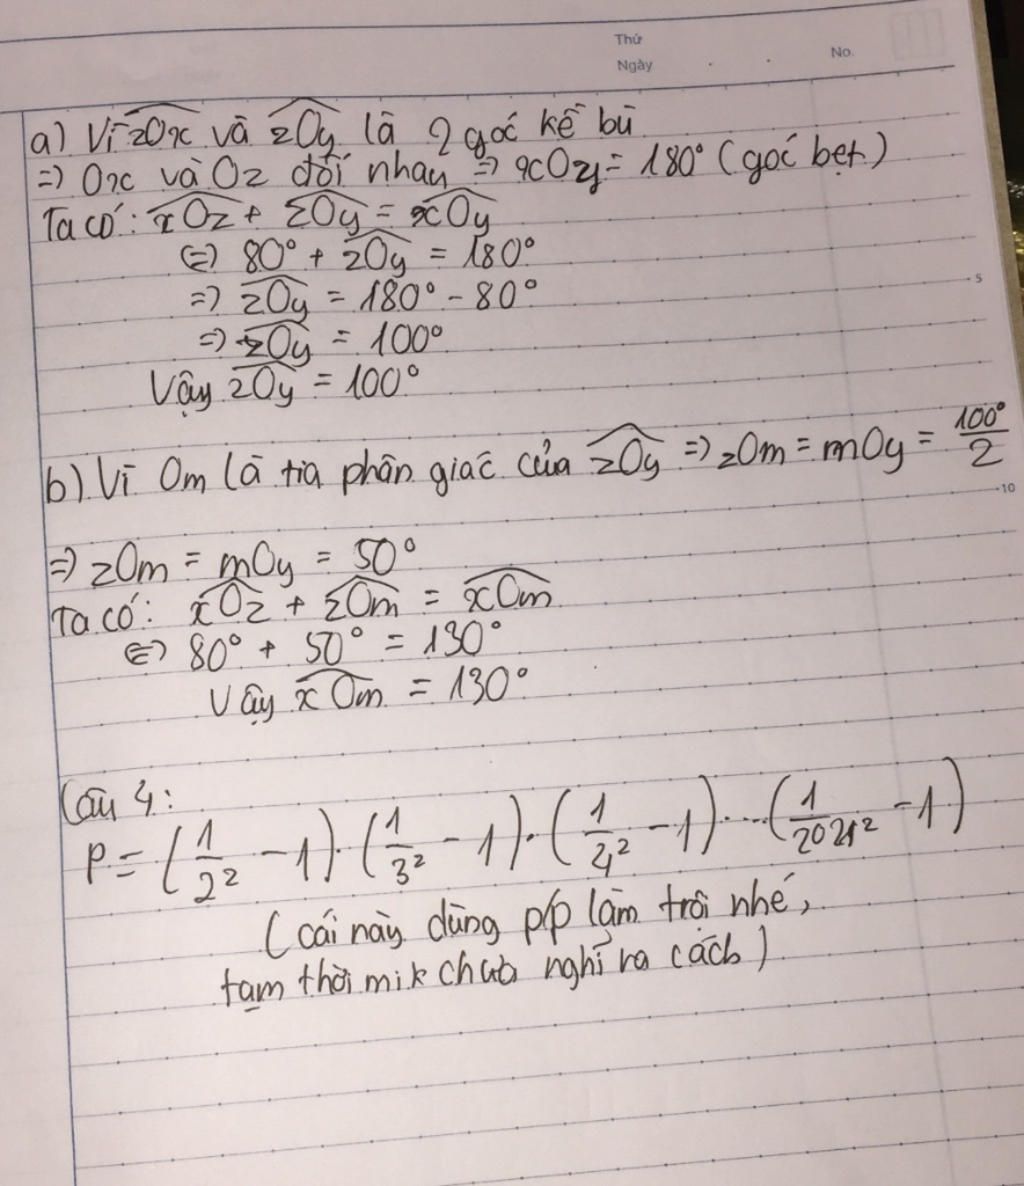 Thứ
Ngày
No.
a) Vì zOx và zOy là 2 góc kề bù
=> Ox và Oz đối nhau => xOy = 180° (góc bẹt)
Ta có: xOz + zOy = xOy
<=> 80° + zOy = 180°
=> zOy = 180° - 80°
=> zOy = 100°
Vậy zOy = 100°
5
b) Vì Om là tia phân giác của zOy => zOm = mOy = 100°/2
10
=> zOm = mOy = 50°
Ta có: xOz + zOm = xOm
<=> 80° + 50° = 130°
Vậy xOm = 130°
Câu 4:
P = (1/2² - 1).(1/3² - 1).(1/4² - 1)....(1/2021² - 1)
(cái này dùng p/p làm trội nhé,
tạm thời mik chưa nghĩ ra cách)